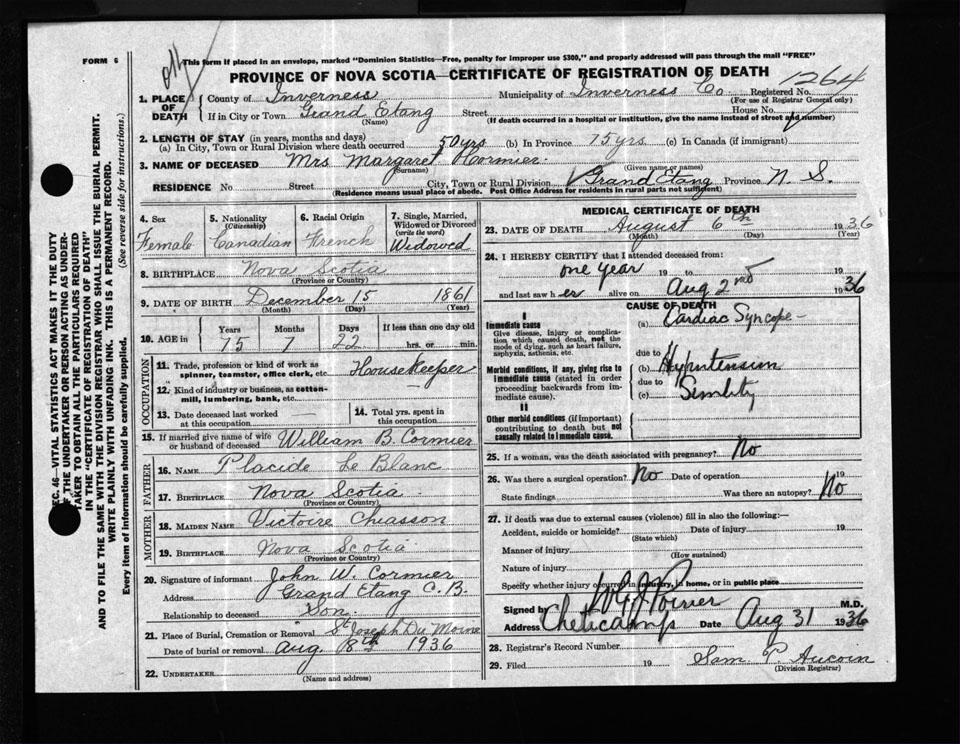 FORM 6
This form if placed in an envelope, marked "Dominion Statistics—Free, penalty for improper use $300," and properly addressed will pass through the mail "FREE"
PROVINCE OF NOVA SCOTIA—CERTIFICATE OF REGISTRATION OF DEATH
1264
1. PLACE OF DEATH County of Inverness Municipality of Inverness Co Registered No.
(For use of Registrar General only)
If in City or Town Grand Etang Street House No.
(Name) (If death occurred in a hospital or institution, give the name instead of street and number)
2. LENGTH OF STAY (in years, months and days)
(a) In City, Town or Rural Division where death occurred 50 yrs (b) In Province 75 yrs. (c) In Canada (if immigrant)
3. NAME OF DECEASED Mrs Margaret Cormier.
(Surname) (Given name or names)
RESIDENCE No Street City, Town or Rural Division Grand Etang Province N. S.
(Residence means usual place of abode. Post Office Address for residents in rural parts not sufficient)
4. Sex 5. Nationality (Citizenship) 6. Racial Origin 7. Single, Married, Widowed or Divorced (write the word)
Female Canadian French Widowed
8. BIRTHPLACE Nova Scotia
(Province or Country)
9. DATE OF BIRTH December 15 1861
(Month) (Day) (Year)
10. AGE in Years Months Days If less than one day old
75 7 22 hrs. or min.
OCCUPATION
11. Trade, profession or kind of work as spinner, teamster, office clerk, etc. Housekeeper
12. Kind of industry or business, as cotton-mill, lumbering, bank, etc.
13. Date deceased last worked at this occupation
14. Total yrs. spent in this occupation
15. If married give name of wife or husband of deceased William B. Cormier
FATHER
16. NAME Placide Le Blanc
17. BIRTHPLACE Nova Scotia
(Province or Country)
MOTHER
18. MAIDEN NAME Victoire Chiasson
19. BIRTHPLACE Nova Scotia
(Province or Country)
20. Signature of informant John W. Cormier
Address Grand Etang C. B.
Relationship to deceased Son.
21. Place of Burial, Cremation or Removal St Joseph Du Moine
Date of burial or removal Aug 8th 1936
22. UNDERTAKER
(Name and address)
MEDICAL CERTIFICATE OF DEATH
23. DATE OF DEATH August 6th 1936
(Month) (Day) (Year)
24. I HEREBY CERTIFY that I attended deceased from:
one year 19 to
and last saw her alive on Aug 2nd 1936
CAUSE OF DEATH
I
Immediate cause
Give disease, injury or complication which caused death, not the mode of dying, such as heart failure, asphyxia, asthenia, etc.
(a) Cardiac Syncope
due to
Morbid conditions, if any, giving rise to immediate cause (stated in order proceeding backwards from immediate cause).
(b) Hypertension
due to
(c) Senility
II
Other morbid conditions (if important) contributing to death but not causally related to immediate cause.
25. If a woman, was the death associated with pregnancy? No
26. Was there a surgical operation? No Date of operation 19
State findings Was there an autopsy? No
27. If death was due to external causes (violence) fill in also the following:—
Accident, suicide or homicide? Date of injury 19
(State which)
Manner of injury
(How sustained)
Nature of injury
Specify whether injury occurred in industry, in home, or in public place
Signed by Poirier M.D.
Address Cheticamp Date Aug 31 1936
28. Registrar's Record Number
29. Filed 19 Sam P. Aucoin
(Division Registrar)
SEC. 46—VITAL STATISTICS ACT MAKES IT THE DUTY
OF THE UNDERTAKER OR PERSON ACTING AS UNDER-
TAKER TO OBTAIN ALL THE PARTICULARS REQUIRED
IN THE "CERTIFICATE OF REGISTRATION OF DEATH"
AND TO FILE THE SAME WITH THE DIVISION REGISTRAR WHO SHALL ISSUE THE BURIAL PERMIT.
WRITE PLAINLY WITH UNFADING INK. THIS IS A PERMANENT RECORD.
Every item of information should be carefully supplied. (See reverse side for instructions.)